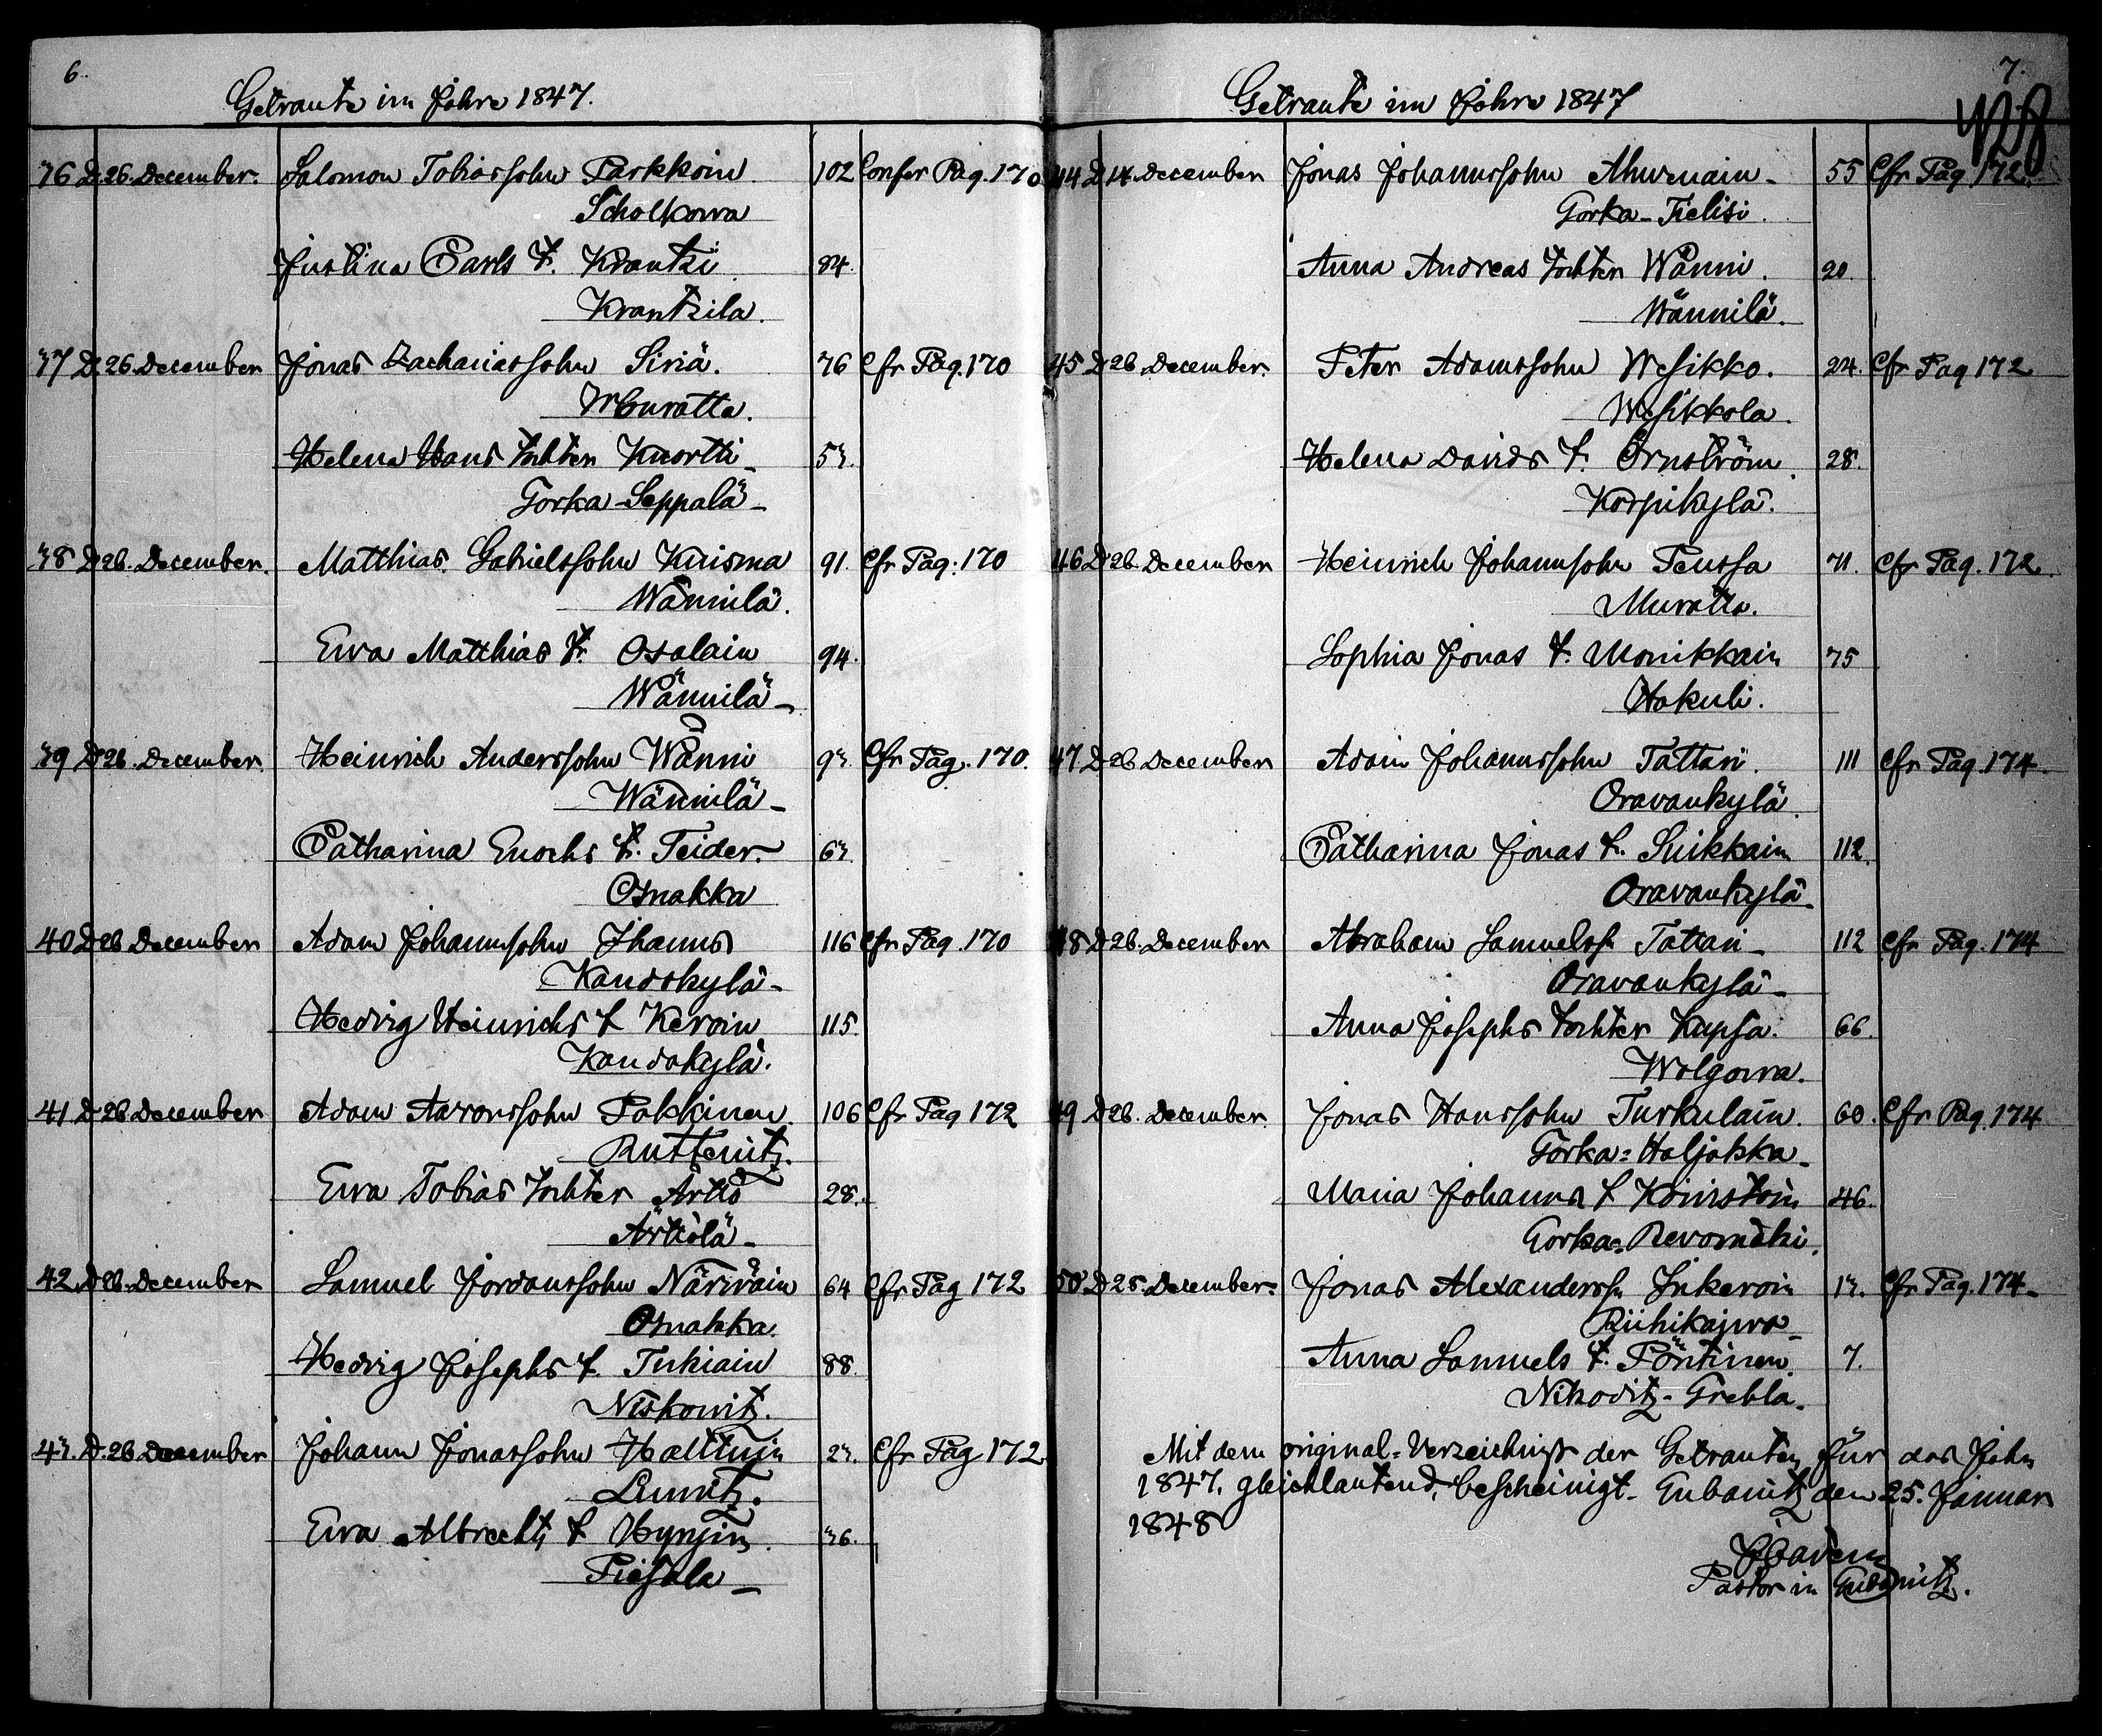 6.
Getraute im Jahre 1847.
36 D. 26. December. Salomon Tobiassohn Parkkoin 102 Confer Pag. 170
Scholkowa
Justina Carls t. Krantzi 84.
Krantzila.
37 D. 26. December Jonas Zachariassohn Siriä. 76 Cfr Pag. 170
Muratta.
Helena Hans tochter Kuortti 53.
Gorka-Seppälä
38 D 26. December. Matthias Gabrielssohn Kuisma 91. Cfr Pag. 170
Wännilä.
Ewa Matthias t. Osalain 94.
Wännilä
39 D 26. December. Heinrich Anderssohn Wänni 93. Cfr Pag. 170.
Wännilä
Catharina Enochs t. Teider. 63.
Osnakka
40 D 26 December Adam Johannsohn Ihanus 116 Cfr Pag. 170
Kandokylä
Hedvig Heinrichs t Keroin 115.
Kandokylä.
41 D 26 December Adam Aaronssohn Pakkinen. 106 Cfr Pag 172
Ruttenitz.
Ewa Tobias tochter Ärtiö 28.
Ärtiölä
42. D 26. December Samuel Jordanssohn Närwäin 64 Cfr Pag 172
Osnakka.
Hedvig Josephs t. Tukiain 88.
Niskowitz.
43. D. 26 December Johann Jonassohn Halttuin 23. Cfr Pag 172
Lunitz.
Ewa Albrechts t Hynjin. 36.
Piesola
7.
Getraute im Jahre 1847
44 D 14. December Jonas Johannssohn Ahwenain 55 Cfr Pag 172.
Gorka-Tielisi.
Anna Andreas tochter Wänni. 20.
Wännilä.
45 D 26 December. Peter Adamssohn Wesikko. 24. Cfr Pag 172
Wesikkola.
Helena Davids t. Örnström. 28.
Korpikylä.
46 D 26 December Heinrich Johannsohn Peussa 71. Cfr Pag. 172.
Muratta.
Sophia Jonas t. Monikkain 75
Hakuli.
47 D 26 December Adam Johannssohn Tattari. 111 Cfr Pag. 174.
Oravankylä
Catharina Jonas t. Suikkain 112.
Oravankylä
48 D 26. December Abraham Samuelss Tattari 112 Cfr Pag. 174
Oravankylä
Anna Josephs tochter Kupsa. 66.
Wolgowa.
49 D 26. December. Jonas Hanssohn Turkulain. 60. Cfr Pag. 174
Gorka=Haljakka
Maria Johanns t Köniström 46.
Gorka=Revomäki.
50 D 28. December. Jonas Alexanderss Inkeroin 13. Cfr Pag. 174
Riihikajwo
Anna Samuels t. Pöntinen 7.
Nikoditz-Grebla.
Mit dem original=Verzeichniss der Getrauten für das Jahr
1847, gleichlautend, bescheinigt. Gubanitz den 25. Januar
1848
Pastor in Gubanitz.